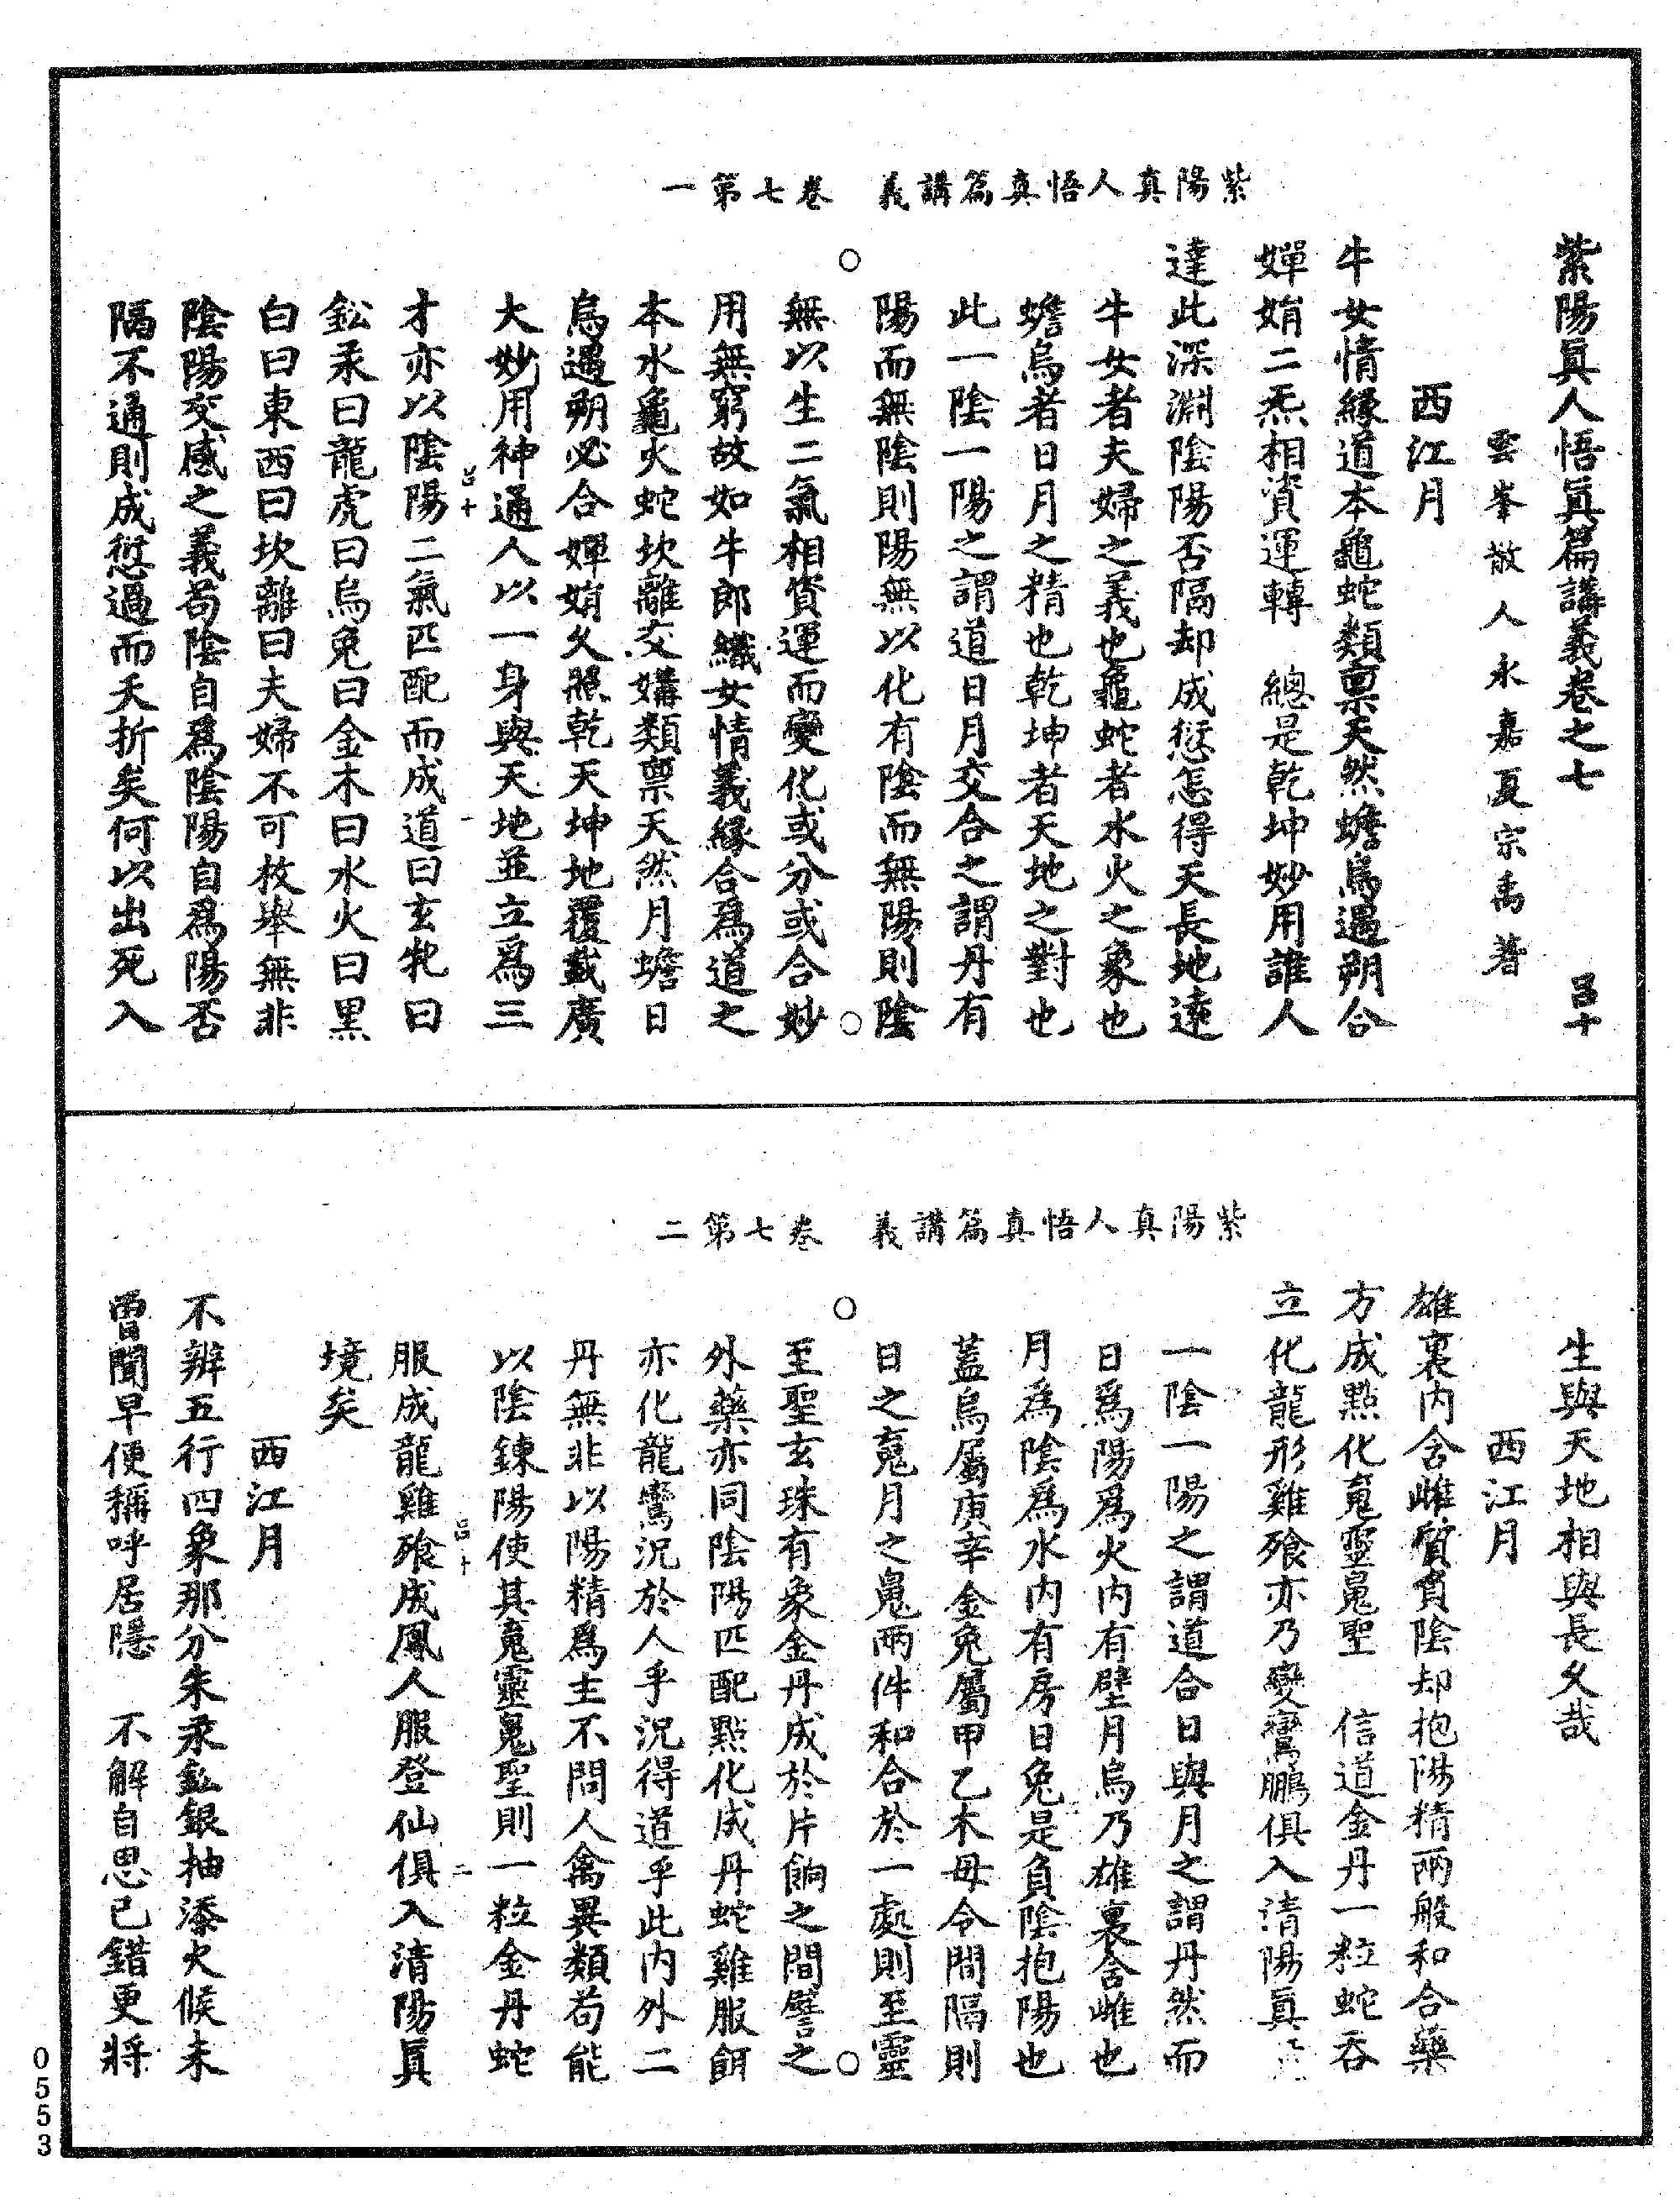 紫陽真人悟真篇講義　卷七第一
紫陽眞人悟眞篇講義卷之七　吕十
雲峯散人永嘉夏宗禹著
西江月
牛女情緣道本龜蛇類稟天然蟾烏遇朔合
嬋娟二炁相資運轉　總是乾坤妙用誰人
達此深淵陰陽否隔却成愆怎得天長地遠
牛女者夫婦之義也龜蛇者水火之象也
蟾烏者日月之精也乾坤者天地之對也
此一陰一陽之謂道日月交合之謂丹有
陽而無陰則陽無以化有陰而無陽則陰
無以生二氣相資運而變化或分或合妙
用無窮故如牛郎織女情義緣合爲道之
本水龜火蛇坎離交媾類稟天然月蟾日
烏遇朔必合嬋娟久照乾天坤地覆載廣
大妙用神通人以一身與天地並立爲三
吕十　一
才亦以陰陽二氣匹配而成道曰玄牝曰
鈆汞曰龍虎曰烏兔曰金木曰水火曰黑
白曰東西曰坎離曰夫婦不可枚舉無非
陰陽交感之義苟陰自爲陰陽自爲陽否
隔不通則成愆過而夭折矣何以出死入
紫陽真人悟真篇講義　卷七第二
生與天地相與長久哉
西江月
雄裏内含雌質負陰却抱陽精兩般和合藥
方成點化䰟靈魄聖　信道金丹一粒蛇吞
立化龍形雞飱亦乃變鸞鵬俱入清陽眞
一陰一陽之謂道合日與月之謂丹然而
日爲陽爲火内有壁月烏乃雄裏含雌也
月爲陰爲水内有房日兔是負陰抱陽也
蓋烏屬庚辛金兔屬甲乙木毋令間隔則
日之䰟月之魄兩件和合於一處則至靈
至聖玄珠有象金丹成於片餉之間譬之
外藥亦同陰陽匹配點化成丹蛇雞服餌
亦化龍鸞況於人乎況得道乎此内外二
丹無非以陽精爲主不問人禽異類苟能
以陰鍊陽使其䰟靈魄聖則一粒金丹蛇
吕十　二
服成龍雞飱成鳳人服登仙俱入清陽眞
境矣
西江月
不辨五行四象那分朱汞鈆銀抽添火候未
曾聞早便稱呼居隱　不解自思已錯更將
0553